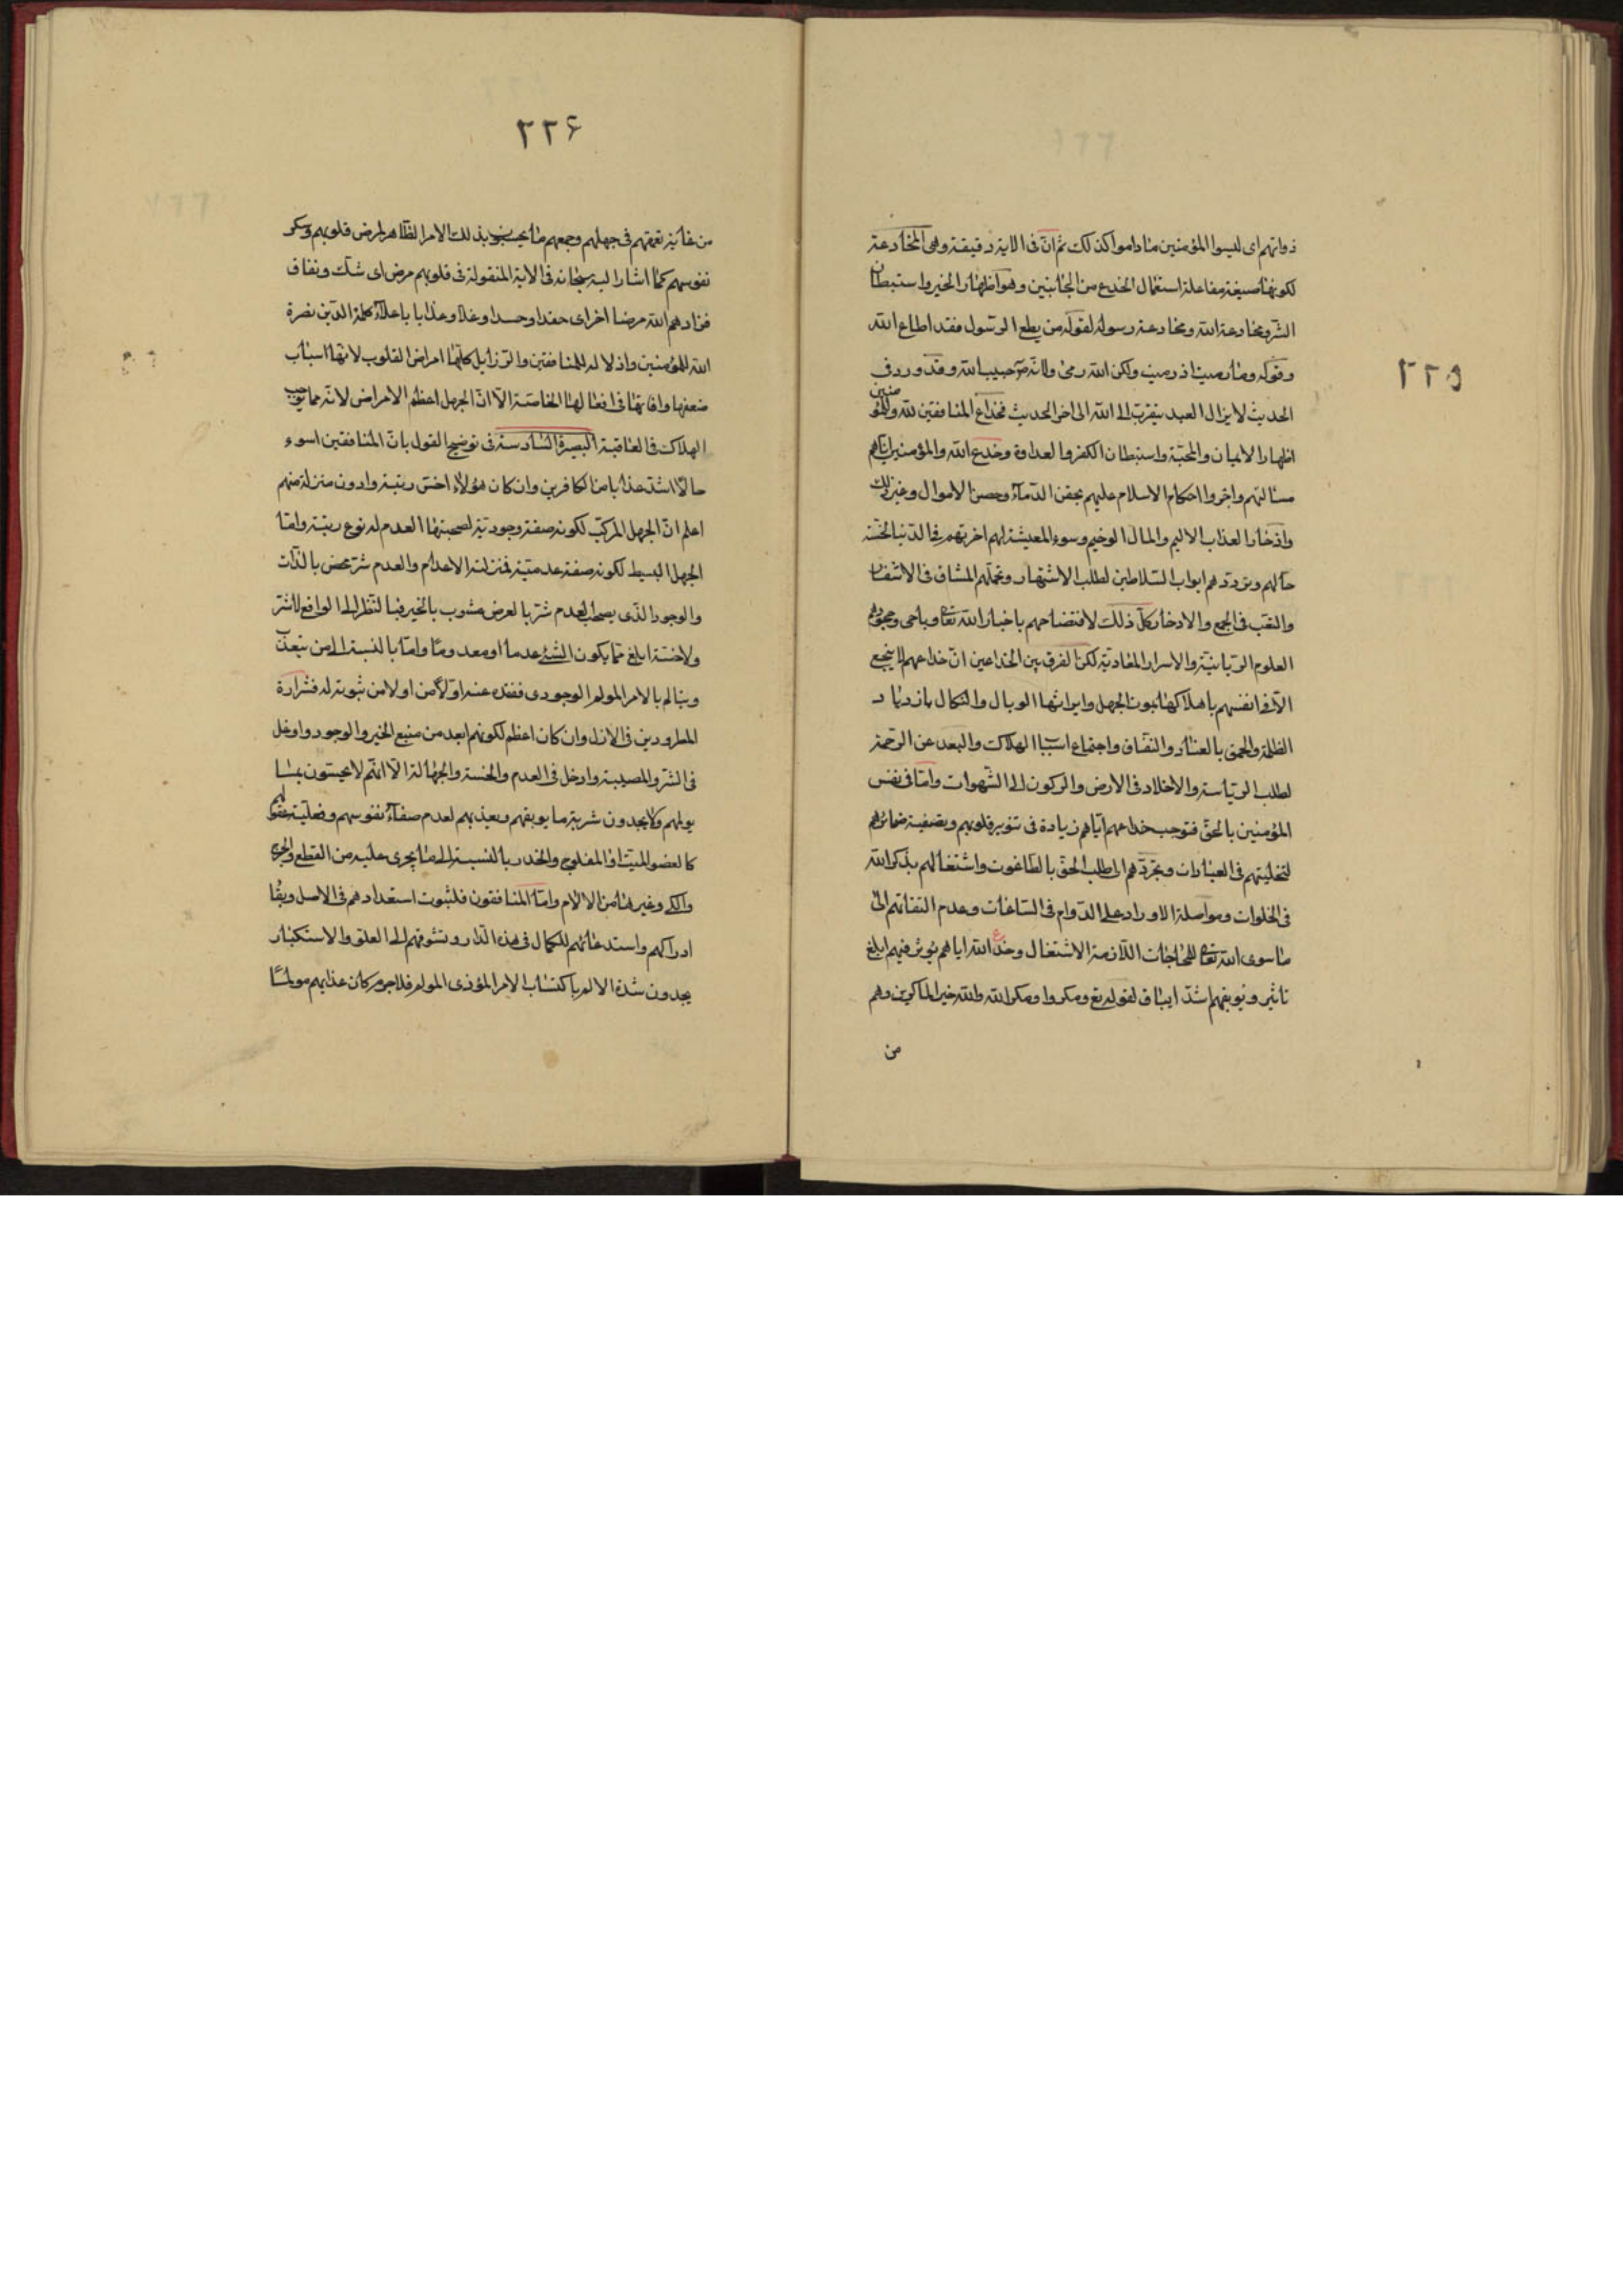 ٢٢٥
ذواتهم اى ليسوا المؤمنين ما داموا كذلك ثم انّ فى الاية دقيقة وهى المخادعة
لكونها صيغة مفاعلة استعمال الخدع من الجانبين وهو اظهار الخير واستبطان
الشر ومخادعة الله ومخادعة رسوله لقوله من يطع الرسول فقد اطاع الله
وقوله وما رميت اذ رميت ولكن الله رمى ولانه حبيب الله وقد ورد فى
الحديث لا يزال العبد يتقرب الى الله الى اخر الحديث فخداع المنافقين لله وللمؤمنين
اظهار الايمان والمحبة واستبطان الكفر والعداوة وخدع الله والمؤمنين اياهم
مسالمتهم واجروا احكام الاسلام عليهم بحقن الدماء وحصن الاموال وغير ذلك
وادخار العذاب الاليم والمال الوخيم وسوء المعيشة لهم اخرتهم فى الدنيا لخسة
حالهم وتردّدهم ابواب السلاطين لطلب الاشتهار وتحملهم المشاق فى الاسفار
والتعب فى الجمع والادخار كل ذلك لافتضاحهم باخبار الله تعالى وباحى
العلوم الربانية والاسرار المعادية لكن الفرق بين الخداعين ان خداعهم لا ينجع
الا فى انفسهم باهلاكها بموت الجهل وايراثها الوبال والنكال بازدياد
الظلمة والحمق بالعناد والنفاق واجتماع اسباب الهلاكت والبعد عن الرحمة
لطلب الرياسة والاخلاد فى الارض والركون الى الشهوات وامّا فى نفس
المؤمنين بالحق فتوجب خداعهم اياهم زيادة فى تنوير قلوبهم وتصفية ضمائرهم
لتخليتهم فى العبادات وتجردهم الى طلب الحق بالطاغوت واشتغالهم بذكر الله
فى الخلوات ومواصلة الاوراد على الدوام فى الساعات وعدم التفاتهم الى
ما سوى الله تعالى للحاجات اللازمة الاشتغال وخدع الله اياهم يوثر فيهم ابلغ
تاثير ويوبقهم اشد ايباق لقوله تع ومكروا ومكر الله والله خير الماكرين وهم
من
٢٢۶
من غاية تعمقهم فى جهلهم وجمعهم ما يحبسو بذلك الامر الظاهر لمرض قلوبهم وسكر
نفوسهم كما اشار اليه سبحانه فى الاية المنقولة فى قلوبهم مرض اى شك ونفاق
فزادهم الله مرضا اخر اى حقدا وحسدا وغلا وعذابا باعلاء كلمة الدين نصرة
الله للمؤمنين واذلاله للمنافقين والرذايل كلها امراض القلوب لانها اسباب
ضعفها وافاتها فى افعالها الخاصة الا ان الجهل اعظم الامراض لانه مما يوجب
الهلاكت فى العاقبة البصيرة السادسة فى توضيح القول بان المنافقين اسوء
حالا اشد عذابا من الكافرين وان كان هؤلاء اخس رتبة وادون منزلة منهم
اعلم ان الجهل المركب لكونه صفة وجودية لصحبتها العدم له نوع رتبة وامّا
الجهل البسيط لكونه صفة عدمية فمنزلته الاعدام والعدم شر محض بالذات
والوجود الذى يصحب العدم شر بالعرض مشوب بالخير فبالنظر الى الواقع لا شر
ولا خسة ابلغ مما يكون الشئ عدما او معدوما وامّا بالنسبة الى من يتعذب
ويتالم بالامر المولم الوجودى ففقده عنه اولا من اولا من ثبوته له فشرارة
المطرودين فى الازل وان كان اعظم لكونهم ابعد من منبع الخير والوجود واوغل
فى الشر والمصيبة وادخل فى العدم والخسة والجهالة الا انهم لا يحسّون بما
يولمهم ولا يجدون شرية ما يوبقهم ويعذبهم لعدم صفاء نفوسهم وفعلية عقولهم
كالعضو الميت او المفلوج والخدر بالنسبة الى ما يجرى عليه من القطع والجرح
والكى وغير ها من الالام وامّا المنافقون فلثبوت استعدادهم فى الاصل وبقا
ادراكهم واستدعائهم للكمال فى هذه الدار وتشوقهم الى العلو والاستكبار
يجدون شدة الالم باكتساب الامر المؤذى المولم فلا جرم كان عذابهم مولما